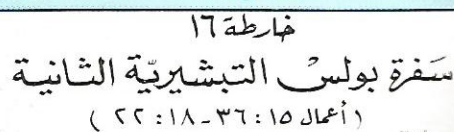 خارطة ١٦
سَفرة بولسْ التبشيريّة الثانية
( أعمال ١٥ : ٣٦ - ١٨ : ٢٢ )